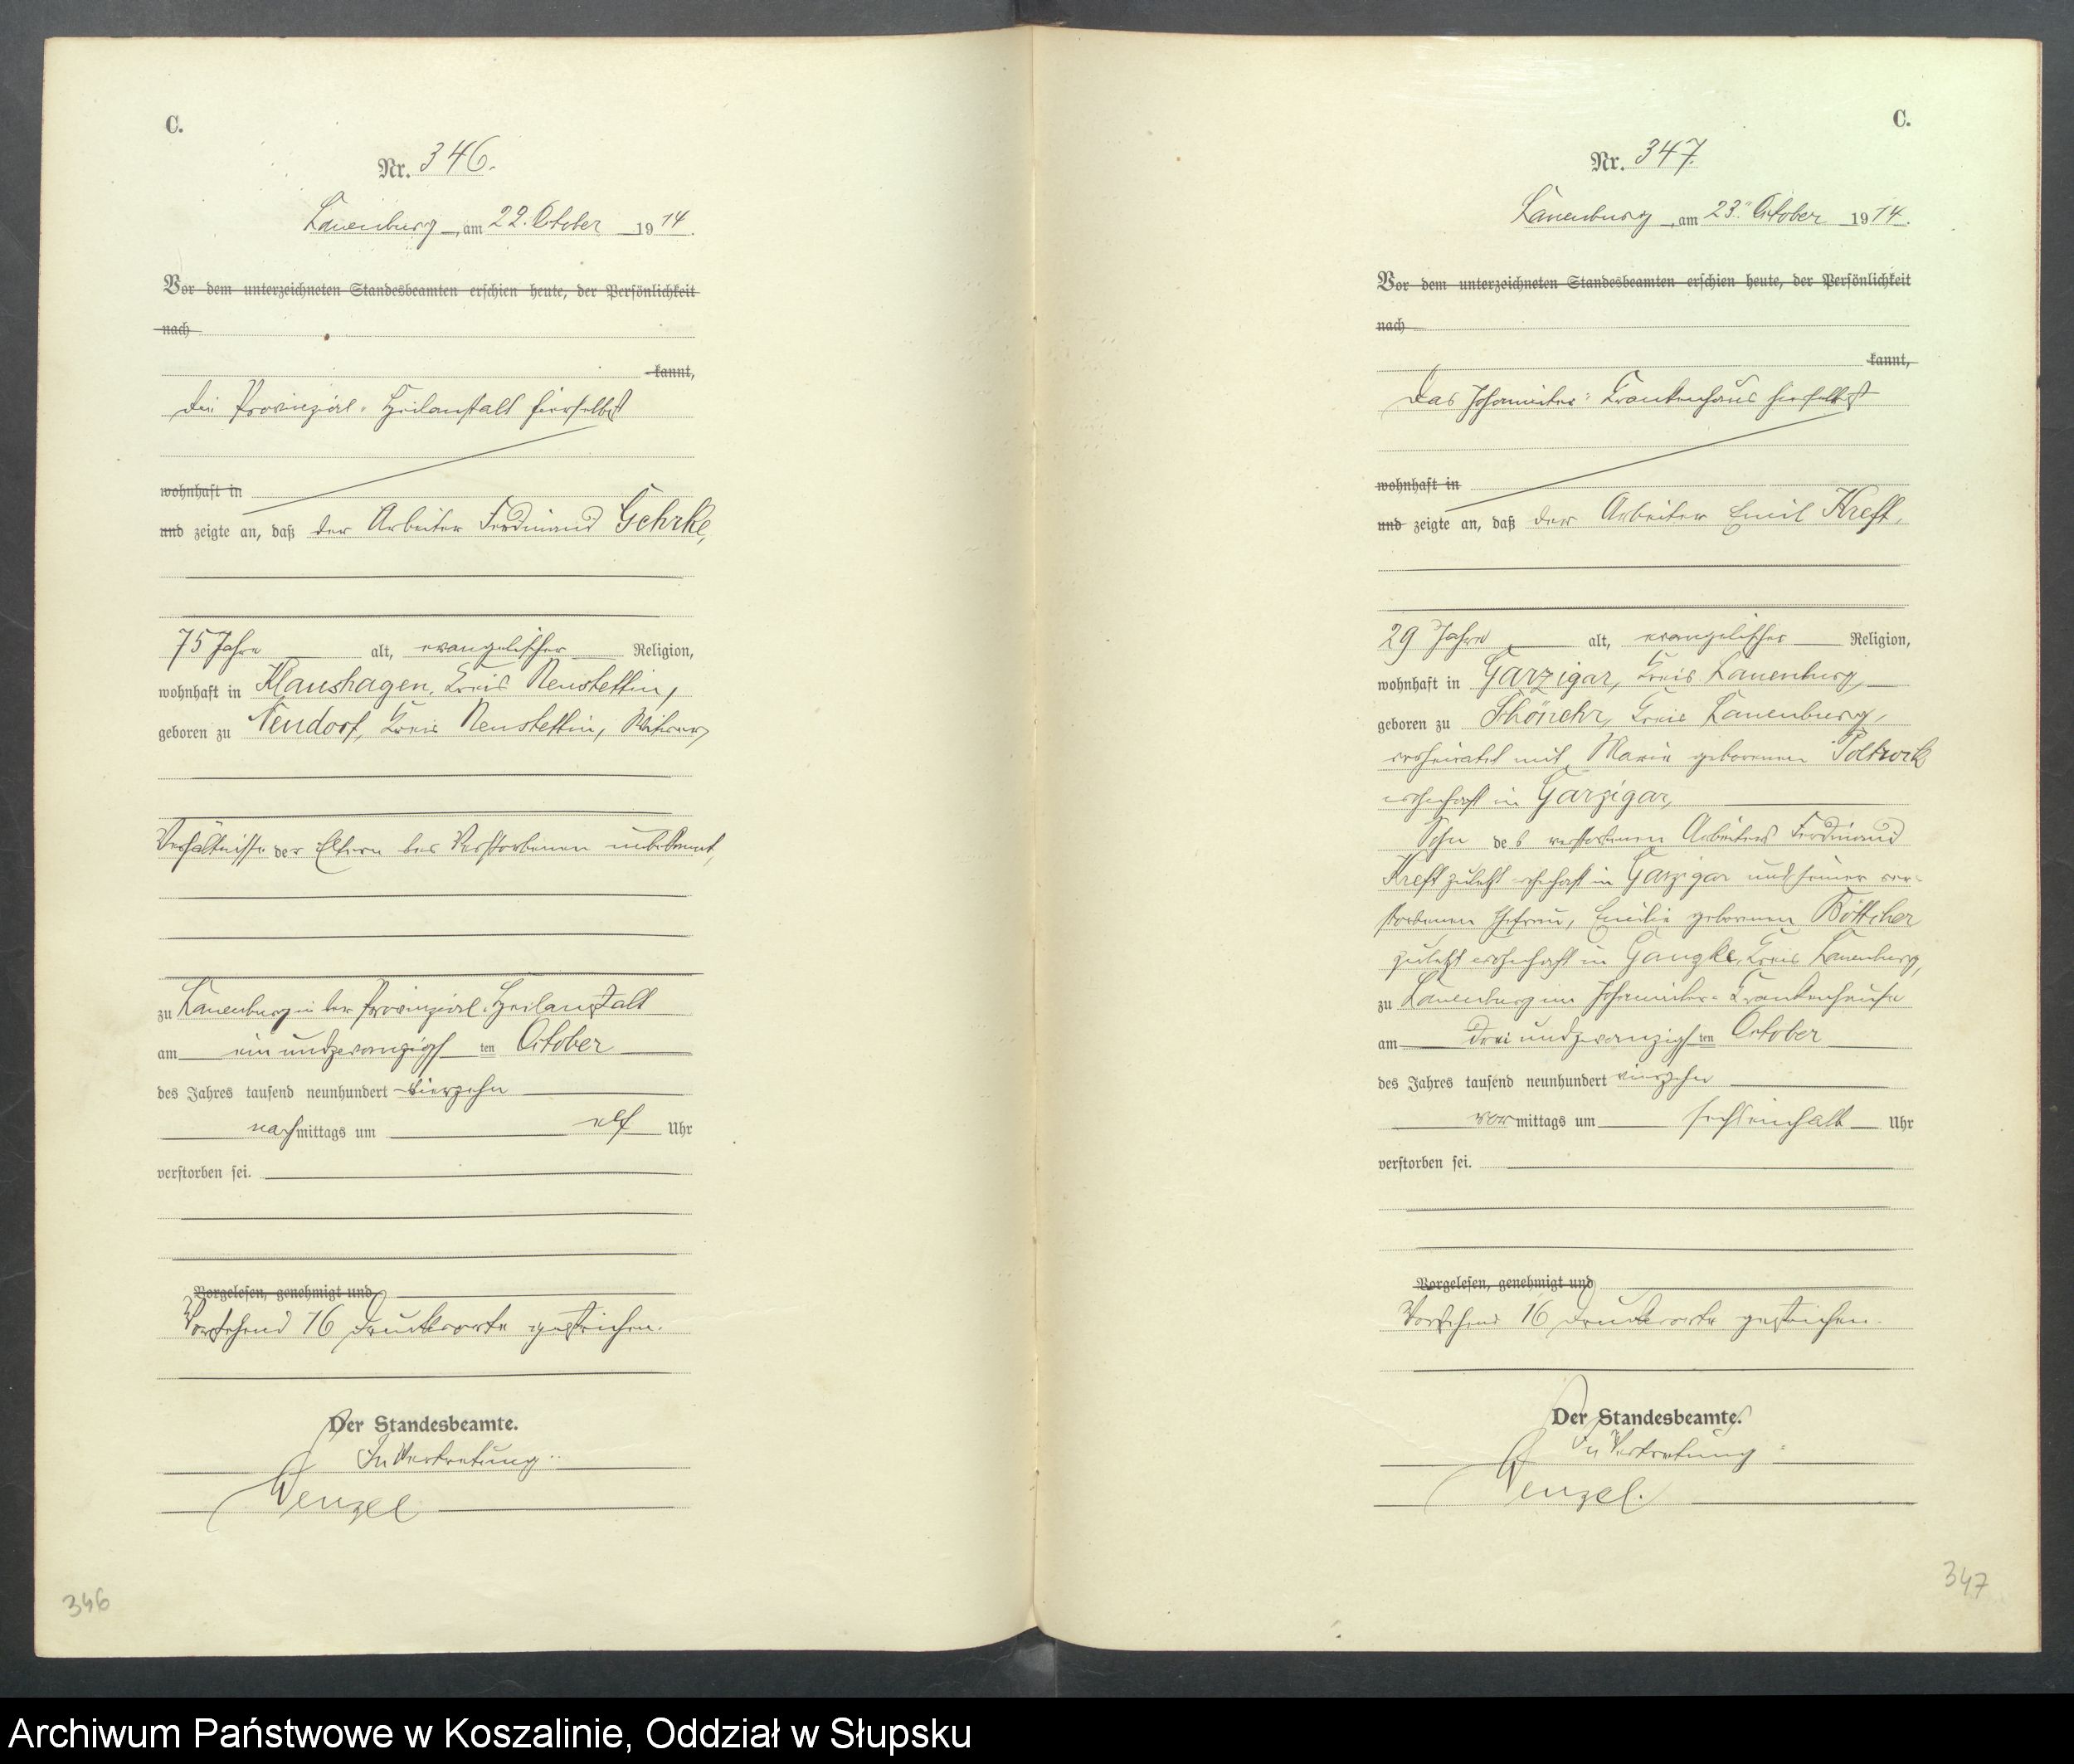 C.
Nr. 346.
Lauenburg, am 22. October 1914.
Vor dem unterzeichneten Standesbeamten erschien heute, der Persönlichkeit
nach
kannt,
die Provinzial-Heilanstalt hierselbst
wohnhaft in
und zeigte an, daß der Arbeiter Ferdinand Gehrke,
75 Jahre alt, evangelischer Religion,
wohnhaft in Klaushagen, Kreis Neustettin,
geboren zu Neudorf, Kreis Neustettin, Witwer,
Verhältnisse der Eltern des Verstorbenen unbekannt,
zu Lauenburg in der Provinzial-Heilanstalt
am einundzwanzigsten October
des Jahres tausend neunhundert vierzehn
nachmittags um elf Uhr
verstorben sei.
Vorgelesen, genehmigt und
Vorstehend 16 Druckworte gestrichen.
Der Standesbeamte.
In Vertretung:
Wenzel
346
C.
Nr. 347.
Lauenburg, am 23. October 1914.
Vor dem unterzeichneten Standesbeamten erschien heute, der Persönlichkeit
nach
kannt,
Das Johanniter-Krankenhaus hierselbst
wohnhaft in
und zeigte an, daß der Arbeiter Emil Kreft,
29 Jahre alt, evangelischer Religion,
wohnhaft in Garzigar, Kreis Lauenburg,
geboren zu Schönehr, Kreis Lauenburg,
verheiratet mit Marie geborenen
wohnhaft in Garzigar,
Sohn des verstorbenen Arbeiters Ferdinand
Kreft zuletzt wohnhaft in Garzigar und seiner ver-
storbenen Ehefrau, Emilie geborenen Böttcher
zuletzt wohnhaft in Gangke, Kreis Lauenburg,
zu Lauenburg im Johanniter-Krankenhause
am dreiundzwanzigsten October
des Jahres tausend neunhundert vierzehn
vormittags um sechseinhalb Uhr
verstorben sei.
Vorgelesen, genehmigt und
Vorstehend 16 Druckworte gestrichen.
Der Standesbeamte.
In Vertretung:
Wenzel.
347
Archiwum Państwowe w Koszalinie, Oddział w Słupsku